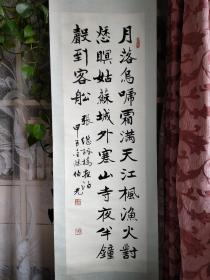 月落烏啼霜满天江楓漁火對
愁眠姑蘇城外寒山寺夜半鐘
聲到客船
張繼詩楓橋夜泊
甲午